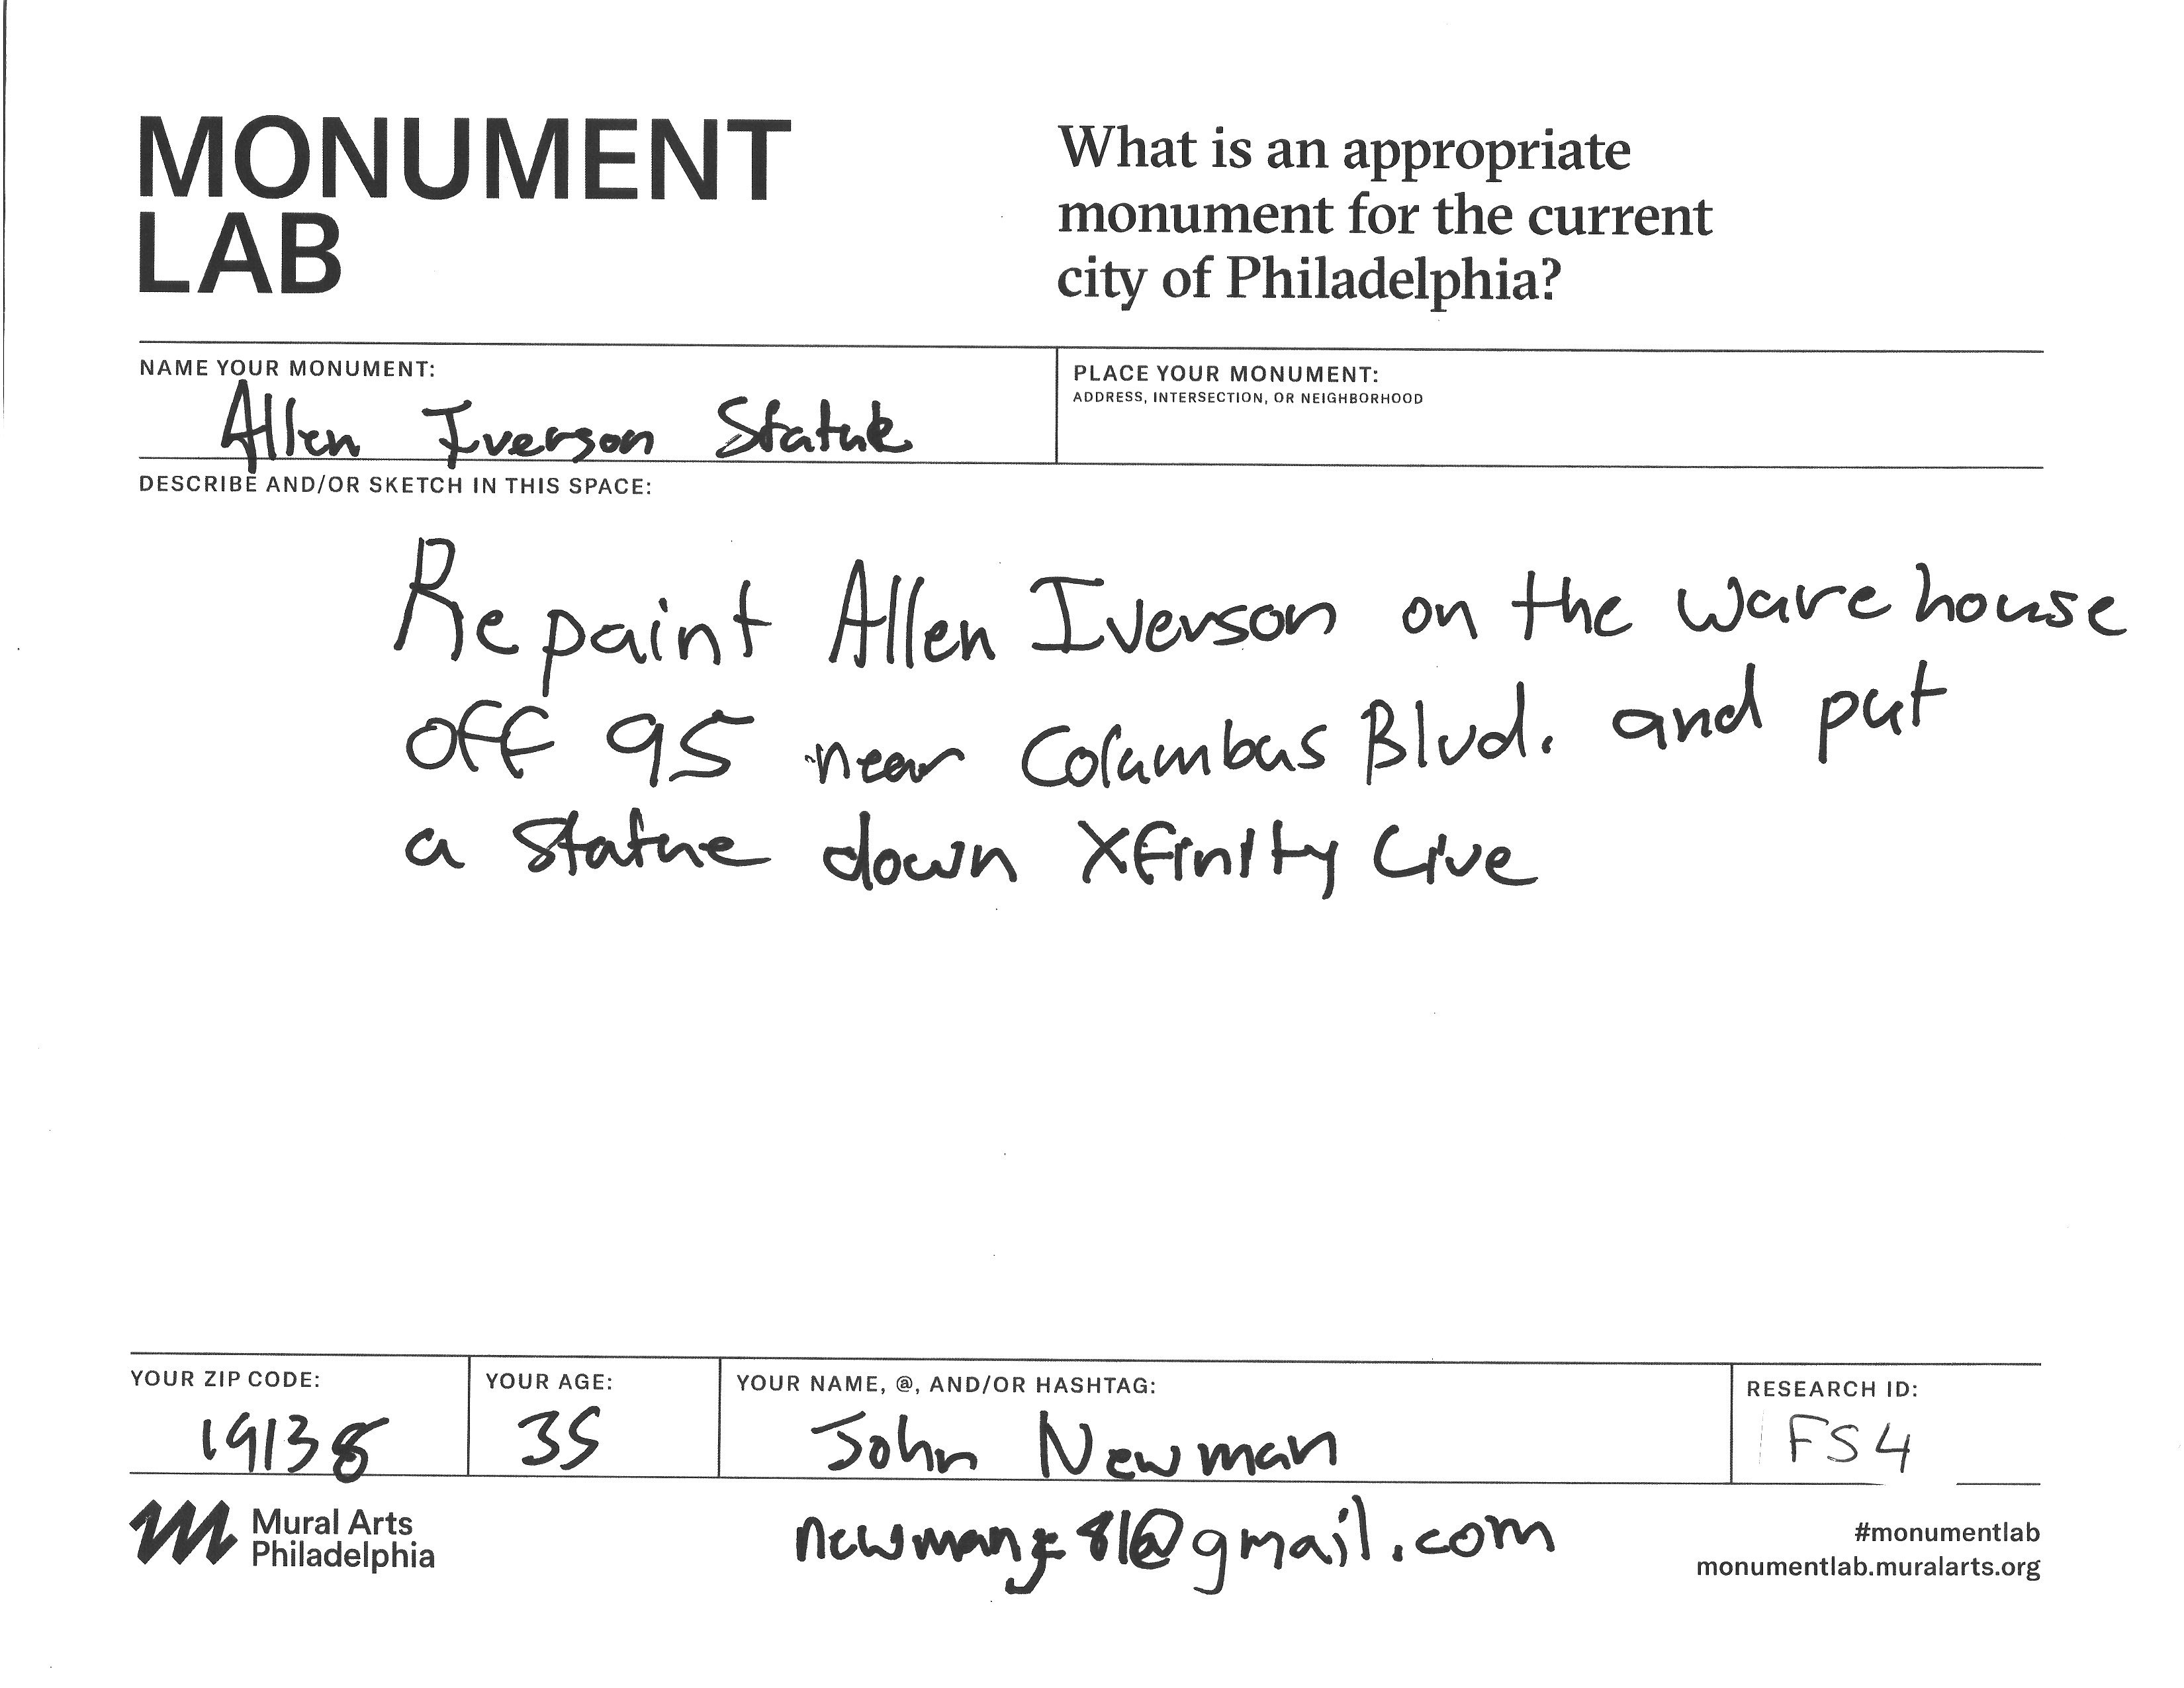 MONUMENT
LAB
What is an appropriate
monument for the current
city of Philadelphia?
NAME YOUR MONUMENT:
Allen Iverson Statue
PLACE YOUR MONUMENT:
ADDRESS, INTERSECTION, OR NEIGHBORHOOD
DESCRIBE AND/OR SKETCH IN THIS SPACE:
Repaint Allen Iverson on the warehouse
off 95 near Columbus Blvd. and put
a statue down Xfinity Live
YOUR ZIP CODE:
19138
YOUR AGE:
35
YOUR NAME, @, AND/OR HASHTAG:
John Newman
RESEARCH ID:
FS4
Mural Arts
Philadelphia
#monumentlab
monumentlab.muralarts.org